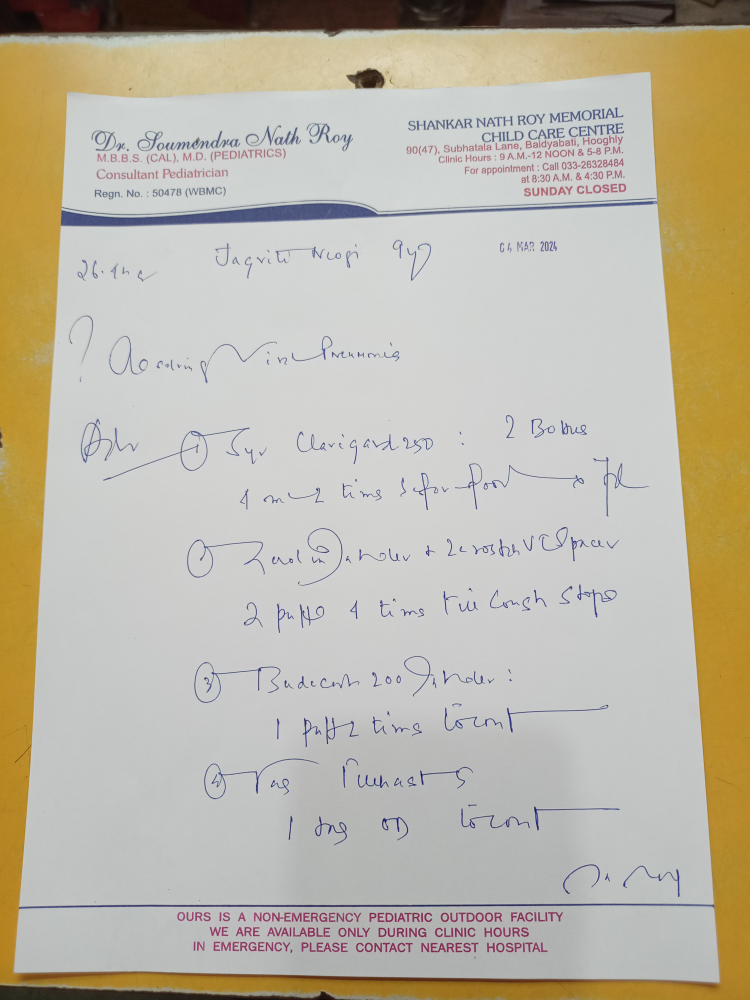 Dr. Soumendra Nath Roy
M.B.B.S. (CAL), M.D. (PEDIATRICS)
Consultant Pediatrician
Regn. No. : 50478 (WBMC)
SHANKAR NATH ROY MEMORIAL
CHILD CARE CENTRE
90(47), Subhatala Lane, Baidyabati, Hooghly
Clinic Hours : 9 A.M.-12 NOON & 5-8 P.M.
For appointment : Call 033-26328484
at 8:30 A.M. & 4:30 P.M.
SUNDAY CLOSED
Jagriti Neogi 9y
04 MAR 2024
? Pneumonia
Adv
① Syr Clarigard 250 : 2
4 ml 2 times food
Inhaler + Zerostat V C Spacer
2 puffs 4 times till cough stops
③ Budecort 200 Inhaler :
1 puff 2 times to cont
④
1 OD to cont
Roy
OURS IS A NON-EMERGENCY PEDIATRIC OUTDOOR FACILITY
WE ARE AVAILABLE ONLY DURING CLINIC HOURS
IN EMERGENCY, PLEASE CONTACT NEAREST HOSPITAL